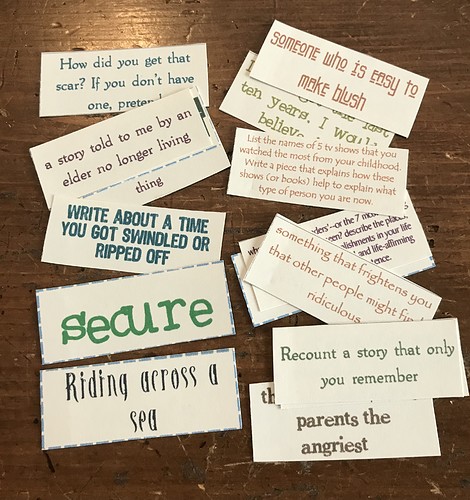 How did you get that
scar? If you don't have
one, pretend
a story told to me by an
elder no longer living
thing
WRITE ABOUT A TIME
YOU GOT SWINDLED OR
RIPPED OFF
secure
Riding across a
sea
someone who is easy to
make blush
the last
ten years, I would
believe
List the names of 5 tv shows that you
watched the most from your childhood.
Write a piece that explains how these
shows (or books) help to explain what
type of person you are now.
the 7
describe the places,
in your life
and life-affirming
something that frightens you
that other people might find
ridiculous
Recount a story that only
you remember
parents the
angriest